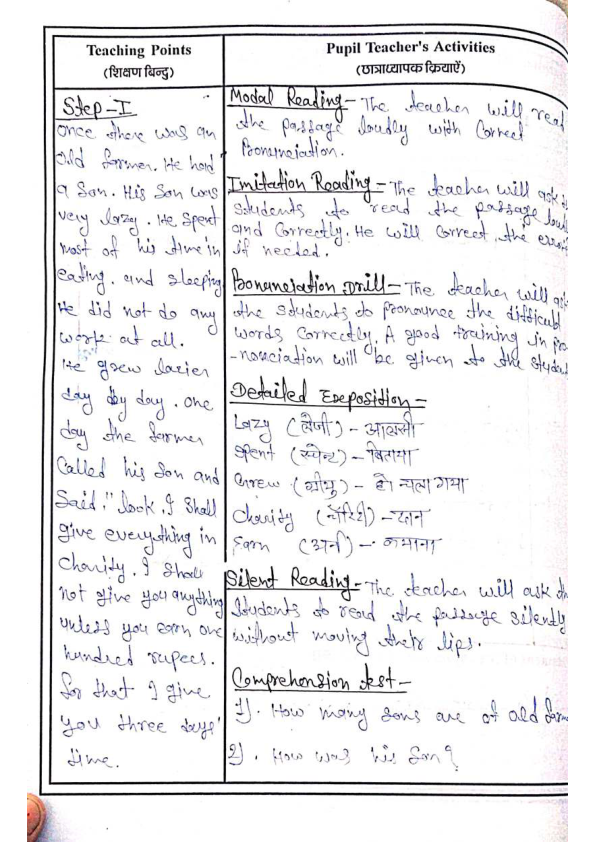 Teaching Points
(शिक्षण बिन्दु)
Step-I
once there was an
old farmer. He had
a Son. His Son was
very lazy. He spent
most of his time in
eating. and sleeping
He did not do any
work at all.
He grew lazier
day by day. One
day the farmer
Called his Son and
Said," look, I shall
give everything in
Charity. I shall
not give you anything
unless you earn one
hundred rupees.
for that I give
you three days'
time.
Pupil Teacher's Activities
(छात्राध्यापक क्रियाएँ)
Modal Reading - The teacher will read
the passage loudly with Correct
Pronunciation.
Imitation Reading - The teacher will ask
students to read the passage
and Correctly. He will correct the
if needed.
Pronunciation Drill - The teacher will
the students to pronounce the difficult
words Correctly. A good training in pro
-nounciation will be given to the
Detailed Exeposition -
Lazy (लैजी) - आलसी
Spent (स्पेन्ट) - बिताया
Grew (ग्रीयु) - हो चला गया
Charity (चैरिटी) - दान
Earn (अर्न) - कमाना
Silent Reading - The teacher will ask
students to read the passage silently
without moving their lips.
Comprehension test -
1). How many sons are of old
2). How was his Son?